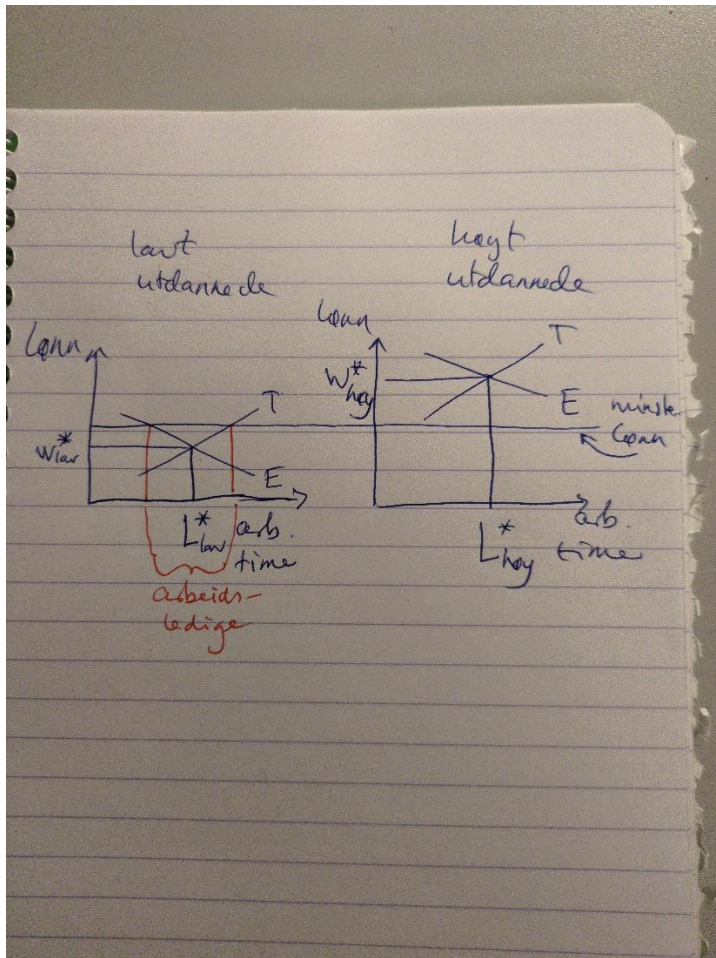 lavt
utdannede
Lønn
T
W*lav
E
L*lav
arb.
time
arbeids-
ledige
høyt
utdannede
Lønn
T
W*høy
E
minste
lønn
L*høy
arb.
time